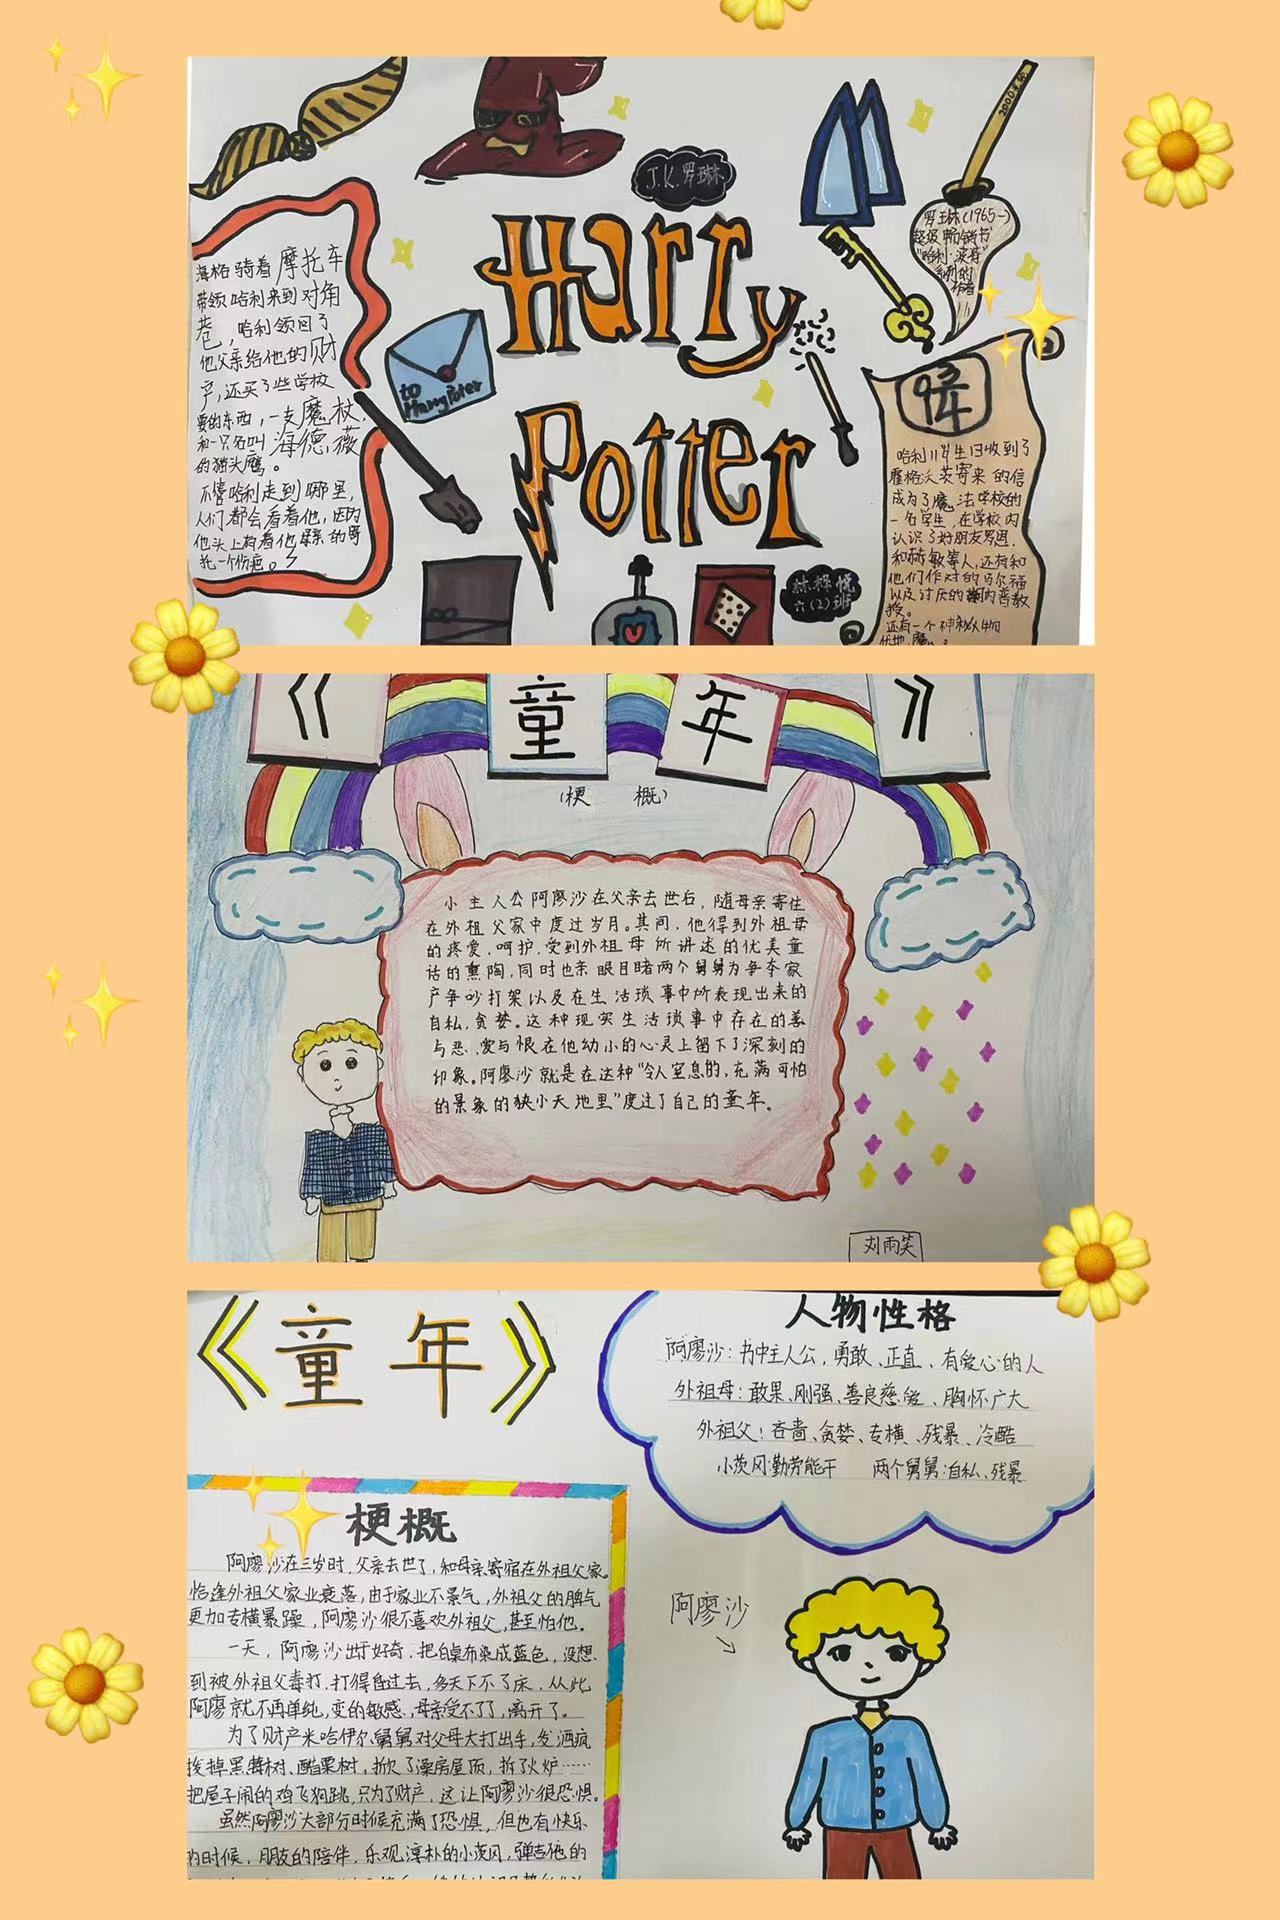 J.K.罗琳
Harry
Potter
海格骑着摩托车
带领哈利来到对角
巷，哈利领回了
他父亲给他的财
产，还买了些学校
要的东西，一支魔杖，
和一只名叫海德薇
的猫头鹰。
不管哈利走到哪里，
人们都会看着他，因为
他头上有着他母亲的
一个伤疤。
to
Harry Poter
2000
罗琳(1965-)
超级畅销书
“哈利·波特”
系列的
作者
9
3
4
哈利11岁生日收到了
霍格沃茨寄来的信
成为了魔法学校的
一名学生，在学校内
认识了好朋友罗恩，
和赫敏等人，还有和
他们作对的马尔福
以及讨厌的斯内普教
授。
还有一个神秘人物
伏地魔。
林烁悦
六(2)班
《童年》
(梗概)
小主人公阿廖沙在父亲去世后，随母亲寄住
在外祖父家中度过岁月。其间，他得到外祖母
的疼爱、呵护，受到外祖母所讲述的优美童
话的熏陶，同时也亲眼目睹两个舅舅为争夺家
产争吵打架以及在生活琐事中所表现出来的
自私，贪婪。这种现实生活琐事中存在的善
与恶、爱与恨在他幼小的心灵上留下了深刻的
印象。阿廖沙就是在这种“令人窒息的，充满可怕
的景象的狭小天地里”度过了自己的童年。
刘雨笑
《童年》
人物性格
阿廖沙：书中主人公，勇敢、正直、有爱心的人
外祖母：敢果、刚强、善良慈爱、胸怀广大
外祖父：吝啬、贪婪、专横、残暴、冷酷
小茨冈：勤劳能干 两个舅舅：自私、残暴
梗概
阿廖沙在三岁时，父亲去世了，和母亲寄宿在外祖父家。
恰逢外祖父家业衰落，由于家业不景气，外祖父的脾气
更加专横暴躁，阿廖沙很不喜欢外祖父，甚至怕他。
一天，阿廖沙出于好奇，把白桌布染成蓝色，没想
到被外祖父毒打，打得昏过去，多天下不了床，从此
阿廖就不再单纯，变的敏感，母亲受不了了，离开了。
为了财产米哈伊尔舅舅对父母大打出手，发酒疯
拔掉黑莓树、醋栗树，掀了澡房屋顶，拆了火炉……
把屋子闹的鸡飞狗跳，只为了财产，这让阿廖沙很恐惧。
虽然阿廖沙大部分时候充满了恐惧，但也有快乐
的时候，朋友的陪伴，乐观淳朴的小茨冈，弹吉他的
阿廖沙